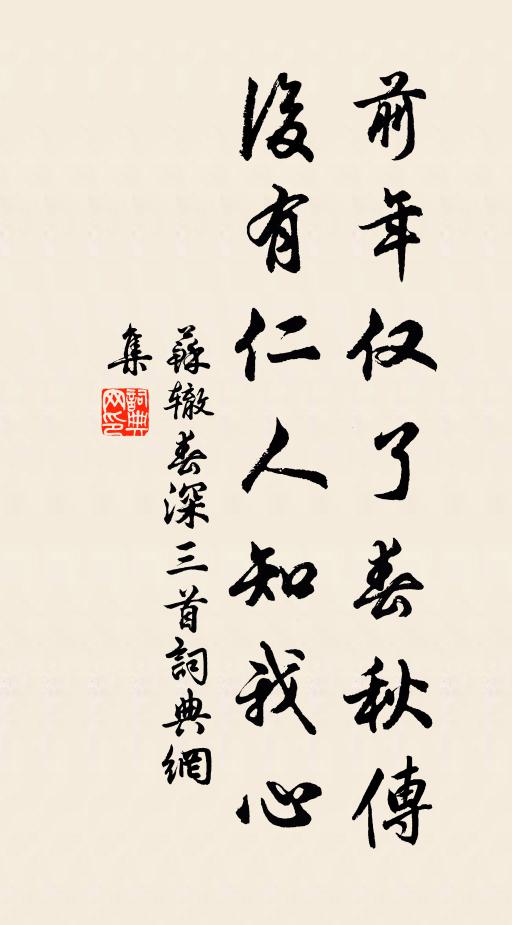 前年仅了春秋傳
後有仁人知我心
蘇辙春深三首詞典網
集
詞典
网印